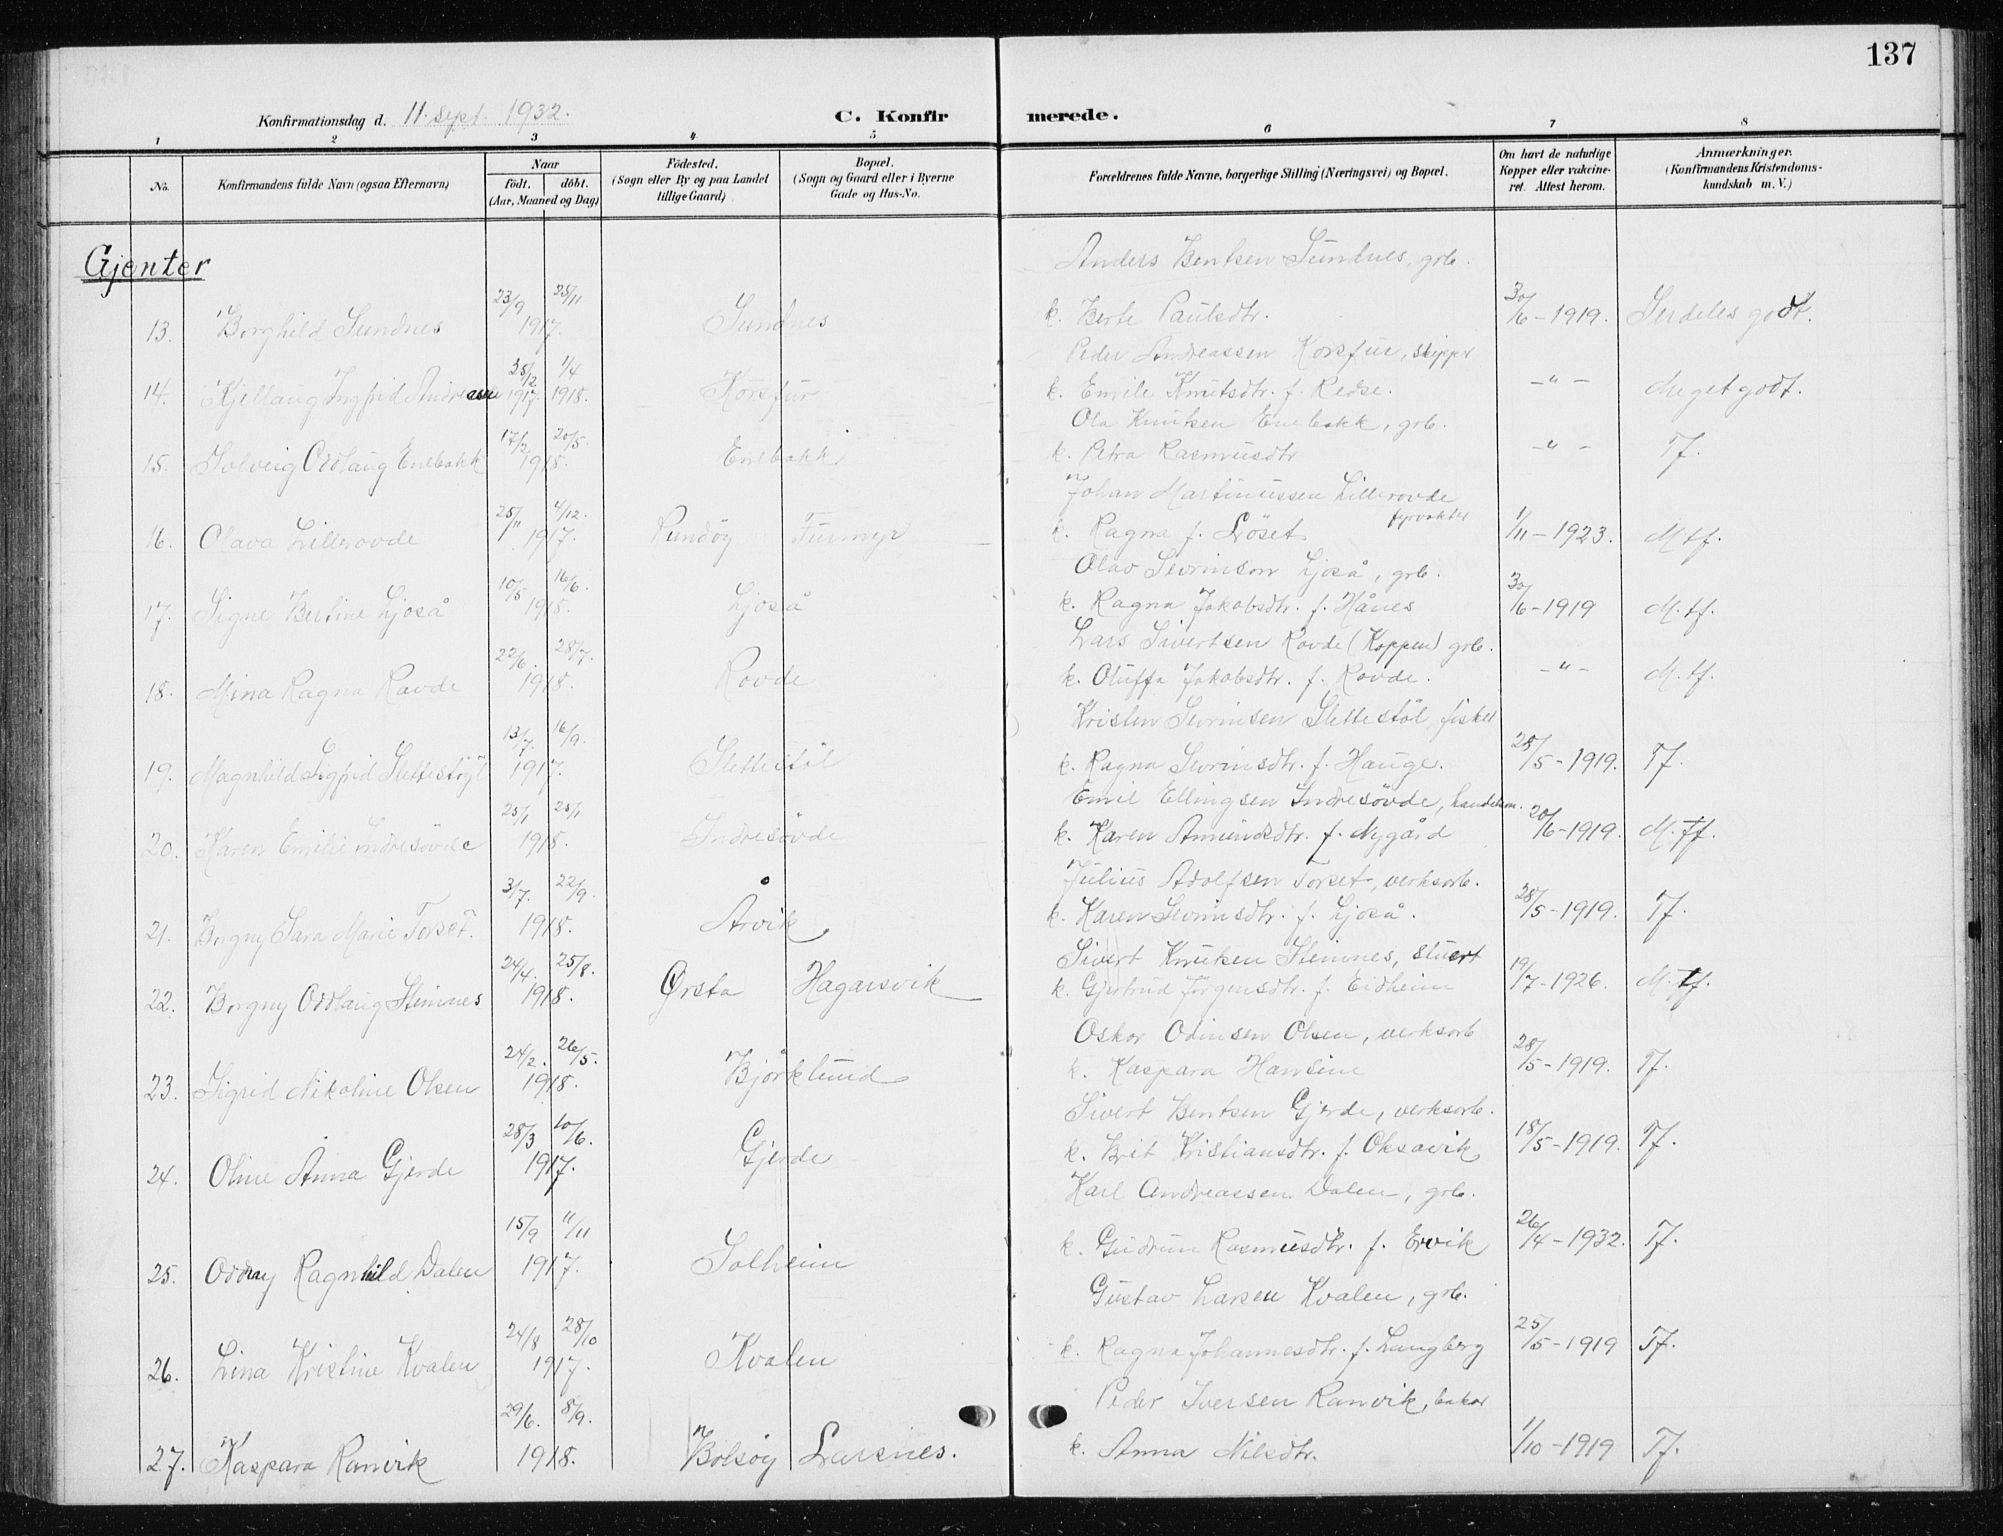 137
Konfirmationsdag d. 11. sept. 1932.
C. Konfirmerede.
1 2 3 4 5 6 7 8
No. Konfirmandens fulde Navn (ogsaa Efternavn) Naar født. døbt. (Aar, Maaned og Dag) Fødested. (Sogn eller By og paa Landet tillige Gaard) Bopæl. (Sogn og Gaard eller i Byerne Gade og Hus-No. Forældrenes fulde Navne, borgerlige Stilling (Næringsvei) og Bopæl. Om havt de naturlige Kopper eller vakcineret. Attest herom. Anmærkninger. (Konfirmandens Kristendomskundskab m. V.)
Gjenter
Anders Bentsen Sundnes, grb.
13. Borghild Sundnes 23/9 25/11 1917. Sundnes k. Berte Paulsdtr. 30/6-1919. Serdeles godt.
Peder Andreassen Korsfur, skipper
14. Kjellaug Ingfrid Andreasen 25/12 1917. 1/4 1918. Korsfur k. Emile Knutsdtr. f. Redse. -"- Meget godt.
Ola Knutsen Enebakk, grb.
15. Solveig Oddlaug Enebakk 17/2 20/5. 1918. Enebakk k. Petra Rasmusdtr -"- Tf.
Johan Martinussen Lillerovde fyrvakter
16. Olava Lillerovde 25/11 4/12. 1917. Rundøy Furmyr k. Ragna f. Løset 1/11-1923. Mtf.
Olav Sevrinson Ljoså, grb.
17. Signe Bertine Ljoså 10/5 16/6. 1918. Ljoså k. Ragna Jakobsdtr. f. Hånes 30/6-1919 M.tf.
Lars Sivertsen Rovde (Koppen) grb.
18. Mina Ragna Rovde 22/6. 28/7. 1918. Rovde k. Oluffa Jakobsdtr. f. Rovde. -"- M.tf.
Kristen Sevrinsen Slettestøl, fisker
19. Magnhild Sigfrid Slettestøyl 13/7. 16/9. 1917. Slettestøl k. Ragna Sevrinsdtr. f. Hauge. 25/5-1919. Tf.
Emil Ellingsen Indresøvde, handelsm.
20. Karen Emilie Indresøvde 25/1 25/1 1918. Indresøvde k. Karen Amundsdtr. f. Nygård 20/6-1919. M.Tf.
Julius Adolfsen Torset, verksarb.
21. Borgny Sara Marie Torset. 3/7. 22/9. 1918. Årvik k. Karen Sevrinsdtr. f. Ljoså. 28/5-1919. Tf.
Sivert Knutsen Steinnes, stuert
22. Borgny Oddlaug Steinnes 24/4. 25/8. 1918. Ørsta Hagarsvik k. Gjertrud Jørgensdtr. f. Eidheim 19/7-1926. M.tf.
Oskar Odinsen Olsen, verksarb
23. Sigrid Nikoline Olsen 24/2. 26/5. 1918. Bjørklund k. Kaspara Hansine 28/5-1919. Tf.
Sivert Bentsen Gjerde, verksarb.
24. Oline Anna Gjerde 28/3 10/6. 1917. Gjerde k. Brit Kristiansdtr. f. Oksavik 18/5-1919. Tf.
Karl Andreassen Dalen, grb.
25. Oddny Ragnhild Dalen 15/9 11/11 1917. Solheim k. Gudrun Rasmusdtr. f. Ervik 26/4-1932. Tf.
Gustav Larsen Kvalen, grb.
26. Lina Kristine Kvalen 24/8 28/10 1917. Kvalen k. Ragna Johannesdtr. f. Langberg 25/5-1919 Tf.
Peder Iversen Ranvik, bakar
27. Kaspara Ranvik 29/6. 8/9. 1918. Bolsøy Larsnes. k. Anna Nilsdtr. 1/10-1919 Tf.